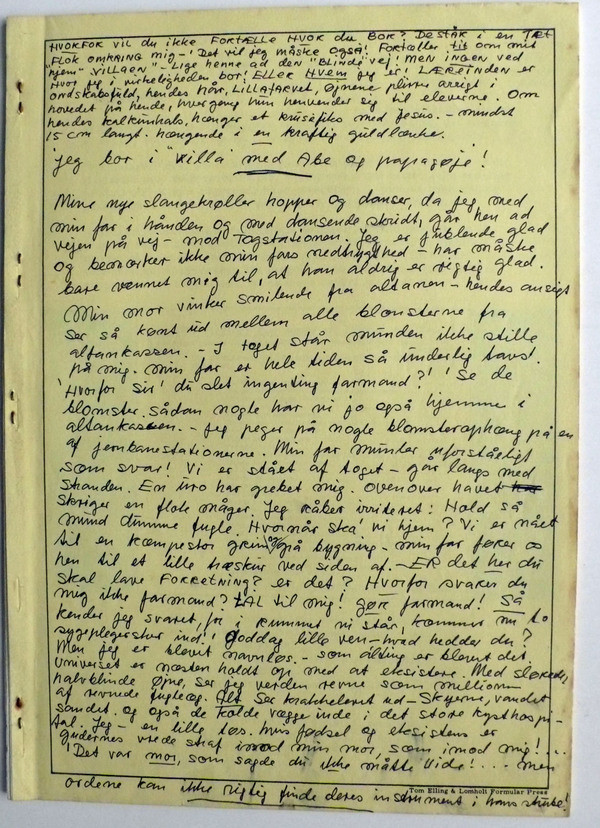 HVORFOR VIL du ikke FORTÆLLE HVOR du BOR? DE STÅR i en TÆT
FLOK OMKRING mig – ' Det vil jeg måske også! Fortæller tit om mit
"hjem" VILLAEN" – Lige henne ad den "BLINDE vej! MEN INGEN ved
Hvor jeg i virkeligheden bor! ELLER HVEM jeg er! LÆRERINDEN er
ondskabsfuld, hendes HÅR, LILLAFARVET, Øjnene plirre arrigt i
hovedet på hende, hvergang hun henvender sig til eleverne. Om
hendes kalkunhals, hænger et krusifiks med Jesus. – mindst
15 cm langt. hængende i en kraftig guldlænke.
jeg bor i "Villa" med Abe og papagøje!
Mine nye slangekrøller hopper og danser, da jeg med
min far i hånden og med dansende skridt, går hen ad
vejen på vej – mod Togstationen. Jeg er jublende glad
og bemærker ikke min fars nedtrygthed – har måske
bare vænnet mig til, at han aldrig er rigtig glad.
Min mor vinker smilende fra altanen – hendes ansigt
ser så kønt ud mellem alle blomsterne fra
altankassen. – I toget står munden ikke stille
på mig. min far er hele tiden så underlig tavs!
'Hvorfor sir' du slet ingenting farmand?' 'Se de
blomster. Sådan nogle har vi jo også hjemme i
altankassen. – Jeg peger på nogle blomsterophæng på en
af jernbanestationerne. Min far mumler uforståeligt
som svar! Vi er stået af toget – går langs med
stranden. En uro har grebet mig. Ovenover havet
skriger en flok måger. Jeg råber irriteret: Hold så
mund dumme fugle. Hvornår ska' vi hjem? Vi er nået
til en kæmpestor grim grå bygning – min far fører os
hen til et lille træskur ved siden af. – ER det her du
skal lave FORRETNING? er det? HVORFOR svarer du
mig ikke farmand? TAL til mig! gør farmand! Så
kender jeg svaret, for i rummet vi står, kommer nu to
sygeplejersker ind! Goddag lille ven – hvad hedder du?
Men jeg er blevet navnløs. – som alting er blevet det
Universet er næsten holdt op med at eksistere. Med slørede,
halvblinde Øjne, ser jeg verden revne som millioner
af revnede fugleæg. Alt ser krakeleret ud – Skyerne, vandet
sandet. og også de kolde vægge inde i det store kysthospi-
tal. Jeg – en lille tøs. hvis fødsel og eksistens er
gudernes vrede straf imod min mor, som imod mig!...
'Det var mor, som sagde du ikke måtte vide!... men
ordene kan ikke rigtig finde deres instrument i hans strube!
Tom Elling & Lomholt Formular Press